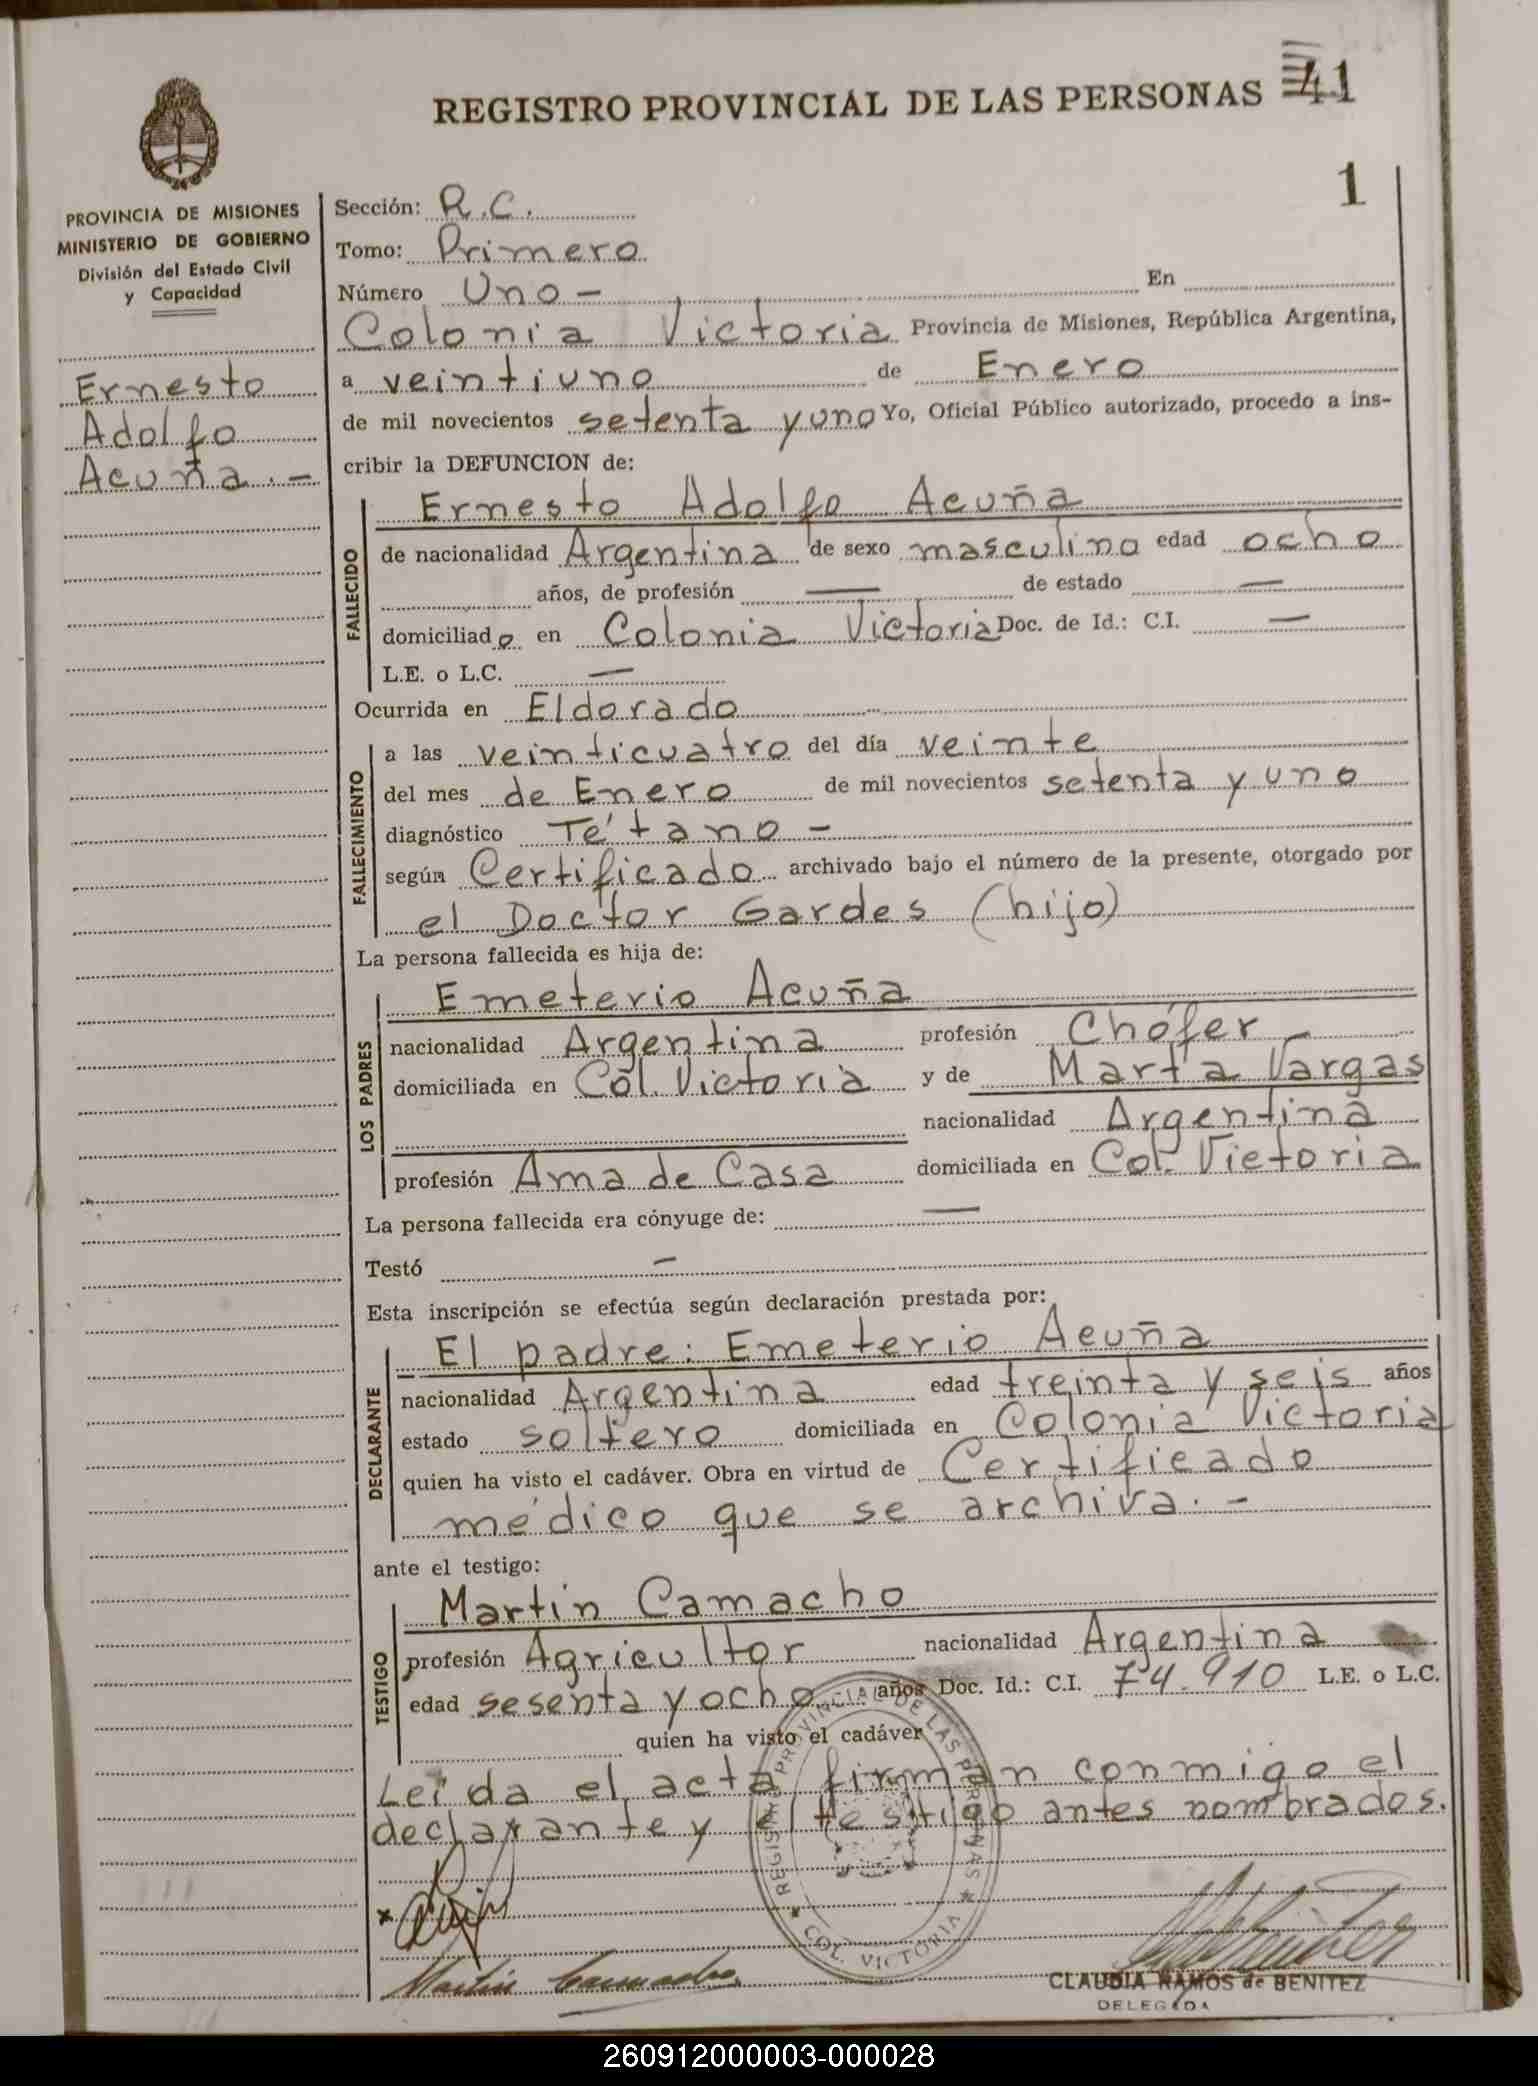 REGISTRO PROVINCIAL DE LAS PERSONAS 41
1
PROVINCIA DE MISIONES
MINISTERIO DE GOBIERNO
División del Estado Civil
y Capacidad
Ernesto
Adolfo
Acuña.-
Sección: R.C.
Tomo: Primero
Número Uno - En
Colonia Victoria Provincia de Misiones, República Argentina,
a veintiuno de Enero
de mil novecientos setenta y uno Yo, Oficial Público autorizado, procedo a ins-
cribir la DEFUNCION de:
FALLECIDO
Ernesto Adolfo Acuña
de nacionalidad Argentina de sexo masculino edad ocho
años, de profesión — de estado —
domiciliado en Colonia Victoria Doc. de Id.: C.I. —
L.E. o L.C. —
Ocurrida en Eldorado
FALLECIMIENTO
a las veinticuatro del día veinte
del mes de Enero de mil novecientos setenta y uno
diagnóstico Tétano -
según Certificado archivado bajo el número de la presente, otorgado por
el Doctor Gardes (hijo)
La persona fallecida es hija de:
LOS PADRES
Emeterio Acuña
nacionalidad Argentina profesión Chófer
domiciliada en Col. Victoria y de Marta Vargas
nacionalidad Argentina
profesión Ama de Casa domiciliada en Col. Victoria
La persona fallecida era cónyuge de: —
Testó -
Esta inscripción se efectúa según declaración prestada por:
DECLARANTE
El padre: Emeterio Acuña
nacionalidad Argentina edad treinta y seis años
estado soltero domiciliada en Colonia Victoria
quien ha visto el cadáver. Obra en virtud de Certificado
médico que se archiva.-
ante el testigo:
TESTIGO
Martin Camacho
profesión Agricultor nacionalidad Argentina
edad sesenta y ocho años Doc. Id.: C.I. 74.910 L.E. o L.C.
quien ha visto el cadáver
Leída el acta firman conmigo el
declarante y el testigo antes nombrados.
REGISTRO PROVINCIAL DE LAS PERSONAS
COL. VICTORIA
Martin Camacho
CLAUDIA RAMOS de BENITEZ
DELEGADA
260912000003-000028